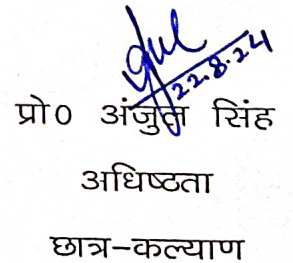 22.8.24
प्रो0 अंजुल सिंह
अधिष्ठता
छात्र-कल्याण